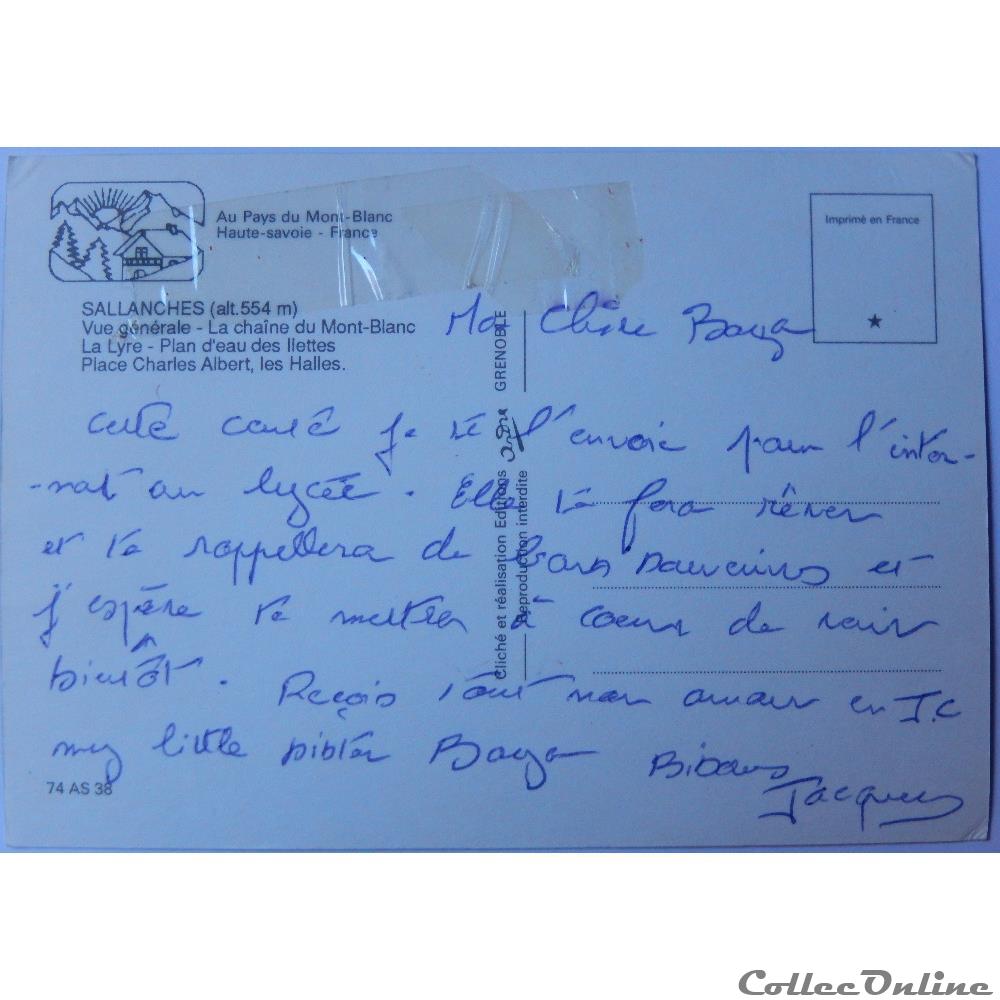 Au Pays du Mont-Blanc
Haute-savoie - France
Imprimé en France
SALLANCHES (alt.554 m)
Vue générale - La chaîne du Mont-Blanc
La Lyre - Plan d'eau des Ilettes
Place Charles Albert, les Halles.
Ma Chère Baya
cette carte je te l'envoie pour l'inter-
-nat au lycée. Elle te fera rêver
et te rappellera de bons souvenirs et
j'espère te mettra à coeur de venir
bientôt. Reçois tout mon amour en J.C
my little sister Baya Bisous
Jacques
74 AS 38
Cliché et réalisation Editions André GRENOBLE
Reproduction interdite
CollecOnline